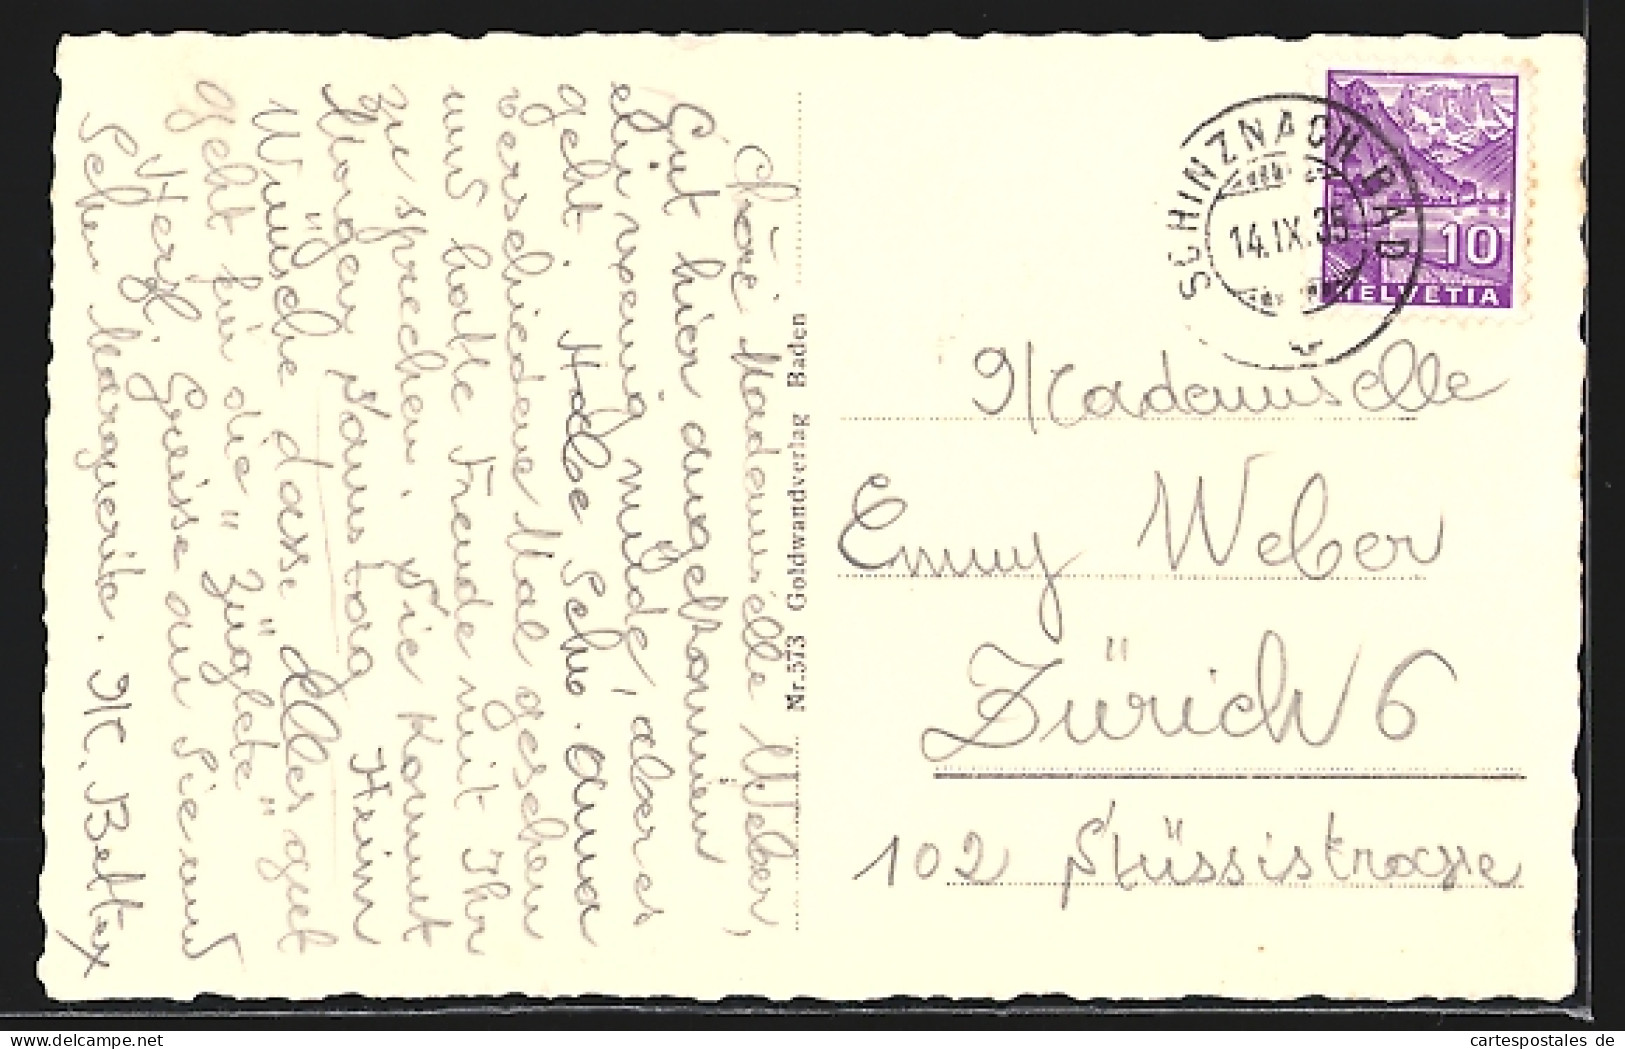 Chère Mademoiselle Weber,
Gut hier angekommen
ein wenig müde, aber es
geht. Habe Schw. Anna
verschiedene Mal gesehen
und hatte Freude mit Ihr
zu sprechen. Sie kommt
Morgen Samstag Heim
Wünsche dass Alles gut
geht für die "Züglete"
Herzl. Grüsse an Sie und
Schw. Marguerite. M. Bettex
Nr. 573 Goldwandverlag Baden
SCHINZNACH BAD
14.IX.35
10
HELVETIA
Mademoiselle
Emmy Weber
Zürich 6
102 Stüssistrasse
cartespostales de